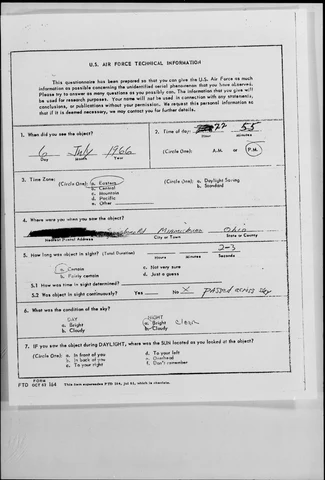 U.S. AIR FORCE TECHNICAL INFORMATION
This questionnaire has been prepared so that you can give the U.S. Air Force as much
information as possible concerning the unidentified aerial phenomenon that you have observed.
Please try to answer as many questions as you possibly can. The information that you give will
be used for research purposes. Your name will not be used in connection with any statements,
conclusions, or publications without your permission. We request this personal information so
that if it is deemed necessary, we may contact you for further details.
1. When did you see the object?
6 July 1966
Day Month Year
2. Time of day: 22 55
Hour Minutes
(Circle One): A.M. or P.M.
3. Time Zone:
(Circle One): a. Eastern
b. Central
c. Mountain
d. Pacific
e. Other
(Circle One): a. Daylight Saving
b. Standard
4. Where were you when you saw the object?
Ohio
Nearest Postal Address City or Town State or County
5. How long was object in sight? (Total Duration) 2-3
Hours Minutes Seconds
a. Certain c. Not very sure
b. Fairly certain d. Just a guess
5.1 How was time in sight determined?
5.2 Was object in sight continuously? Yes No X passed across sky
6. What was the condition of the sky?
DAY NIGHT
a. Bright a. Bright clear
b. Cloudy b. Cloudy
7. IF you saw the object during DAYLIGHT, where was the SUN located as you looked at the object?
(Circle One): a. In front of you d. To your left
b. In back of you e. Overhead
c. To your right f. Don't remember
FORM
FTD OCT 62 164 This form supersedes FTD 164, Jul 61, which is obsolete.